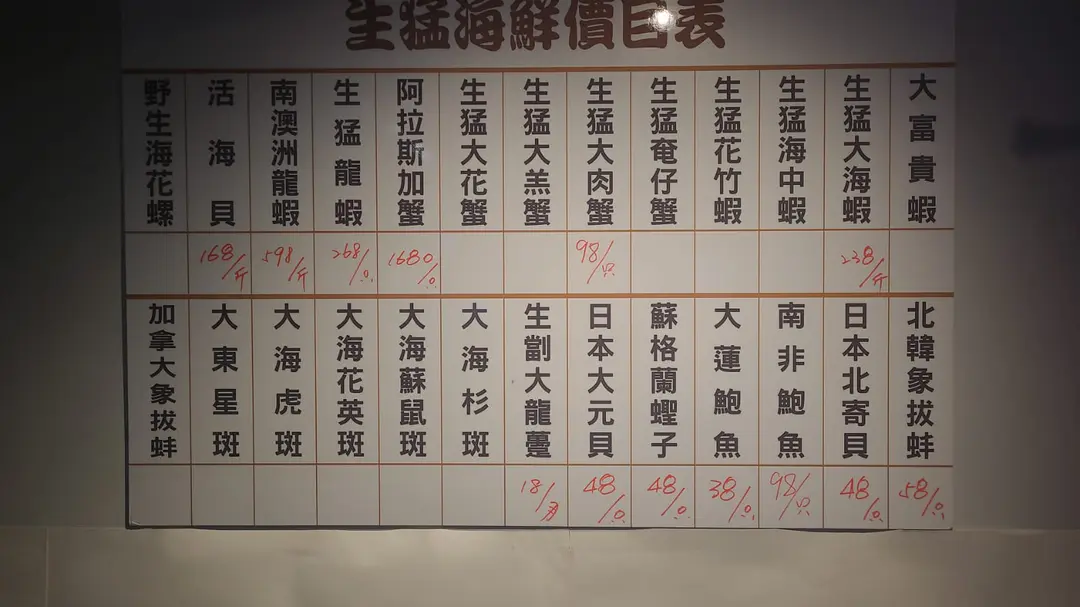 生猛海鮮價目表
大富貴蝦
生猛大海蝦
238/斤
生猛海中蝦
生猛花竹蝦
生猛奄仔蟹
生猛大肉蟹
98/只
生猛大羔蟹
生猛大花蟹
阿拉斯加蟹
1680/只
生猛龍蝦
268/只
南澳洲龍蝦
598/斤
活海貝
168/斤
野生海花螺
北韓象拔蚌
58/只
日本北寄貝
48/只
南非鮑魚
98/只
大蓮鮑魚
38/只
蘇格蘭蟶子
48/只
日本大元貝
48/只
生劏大龍躉
18/
大海杉斑
大海蘇鼠斑
大海花英斑
大海虎斑
大東星斑
加拿大象拔蚌